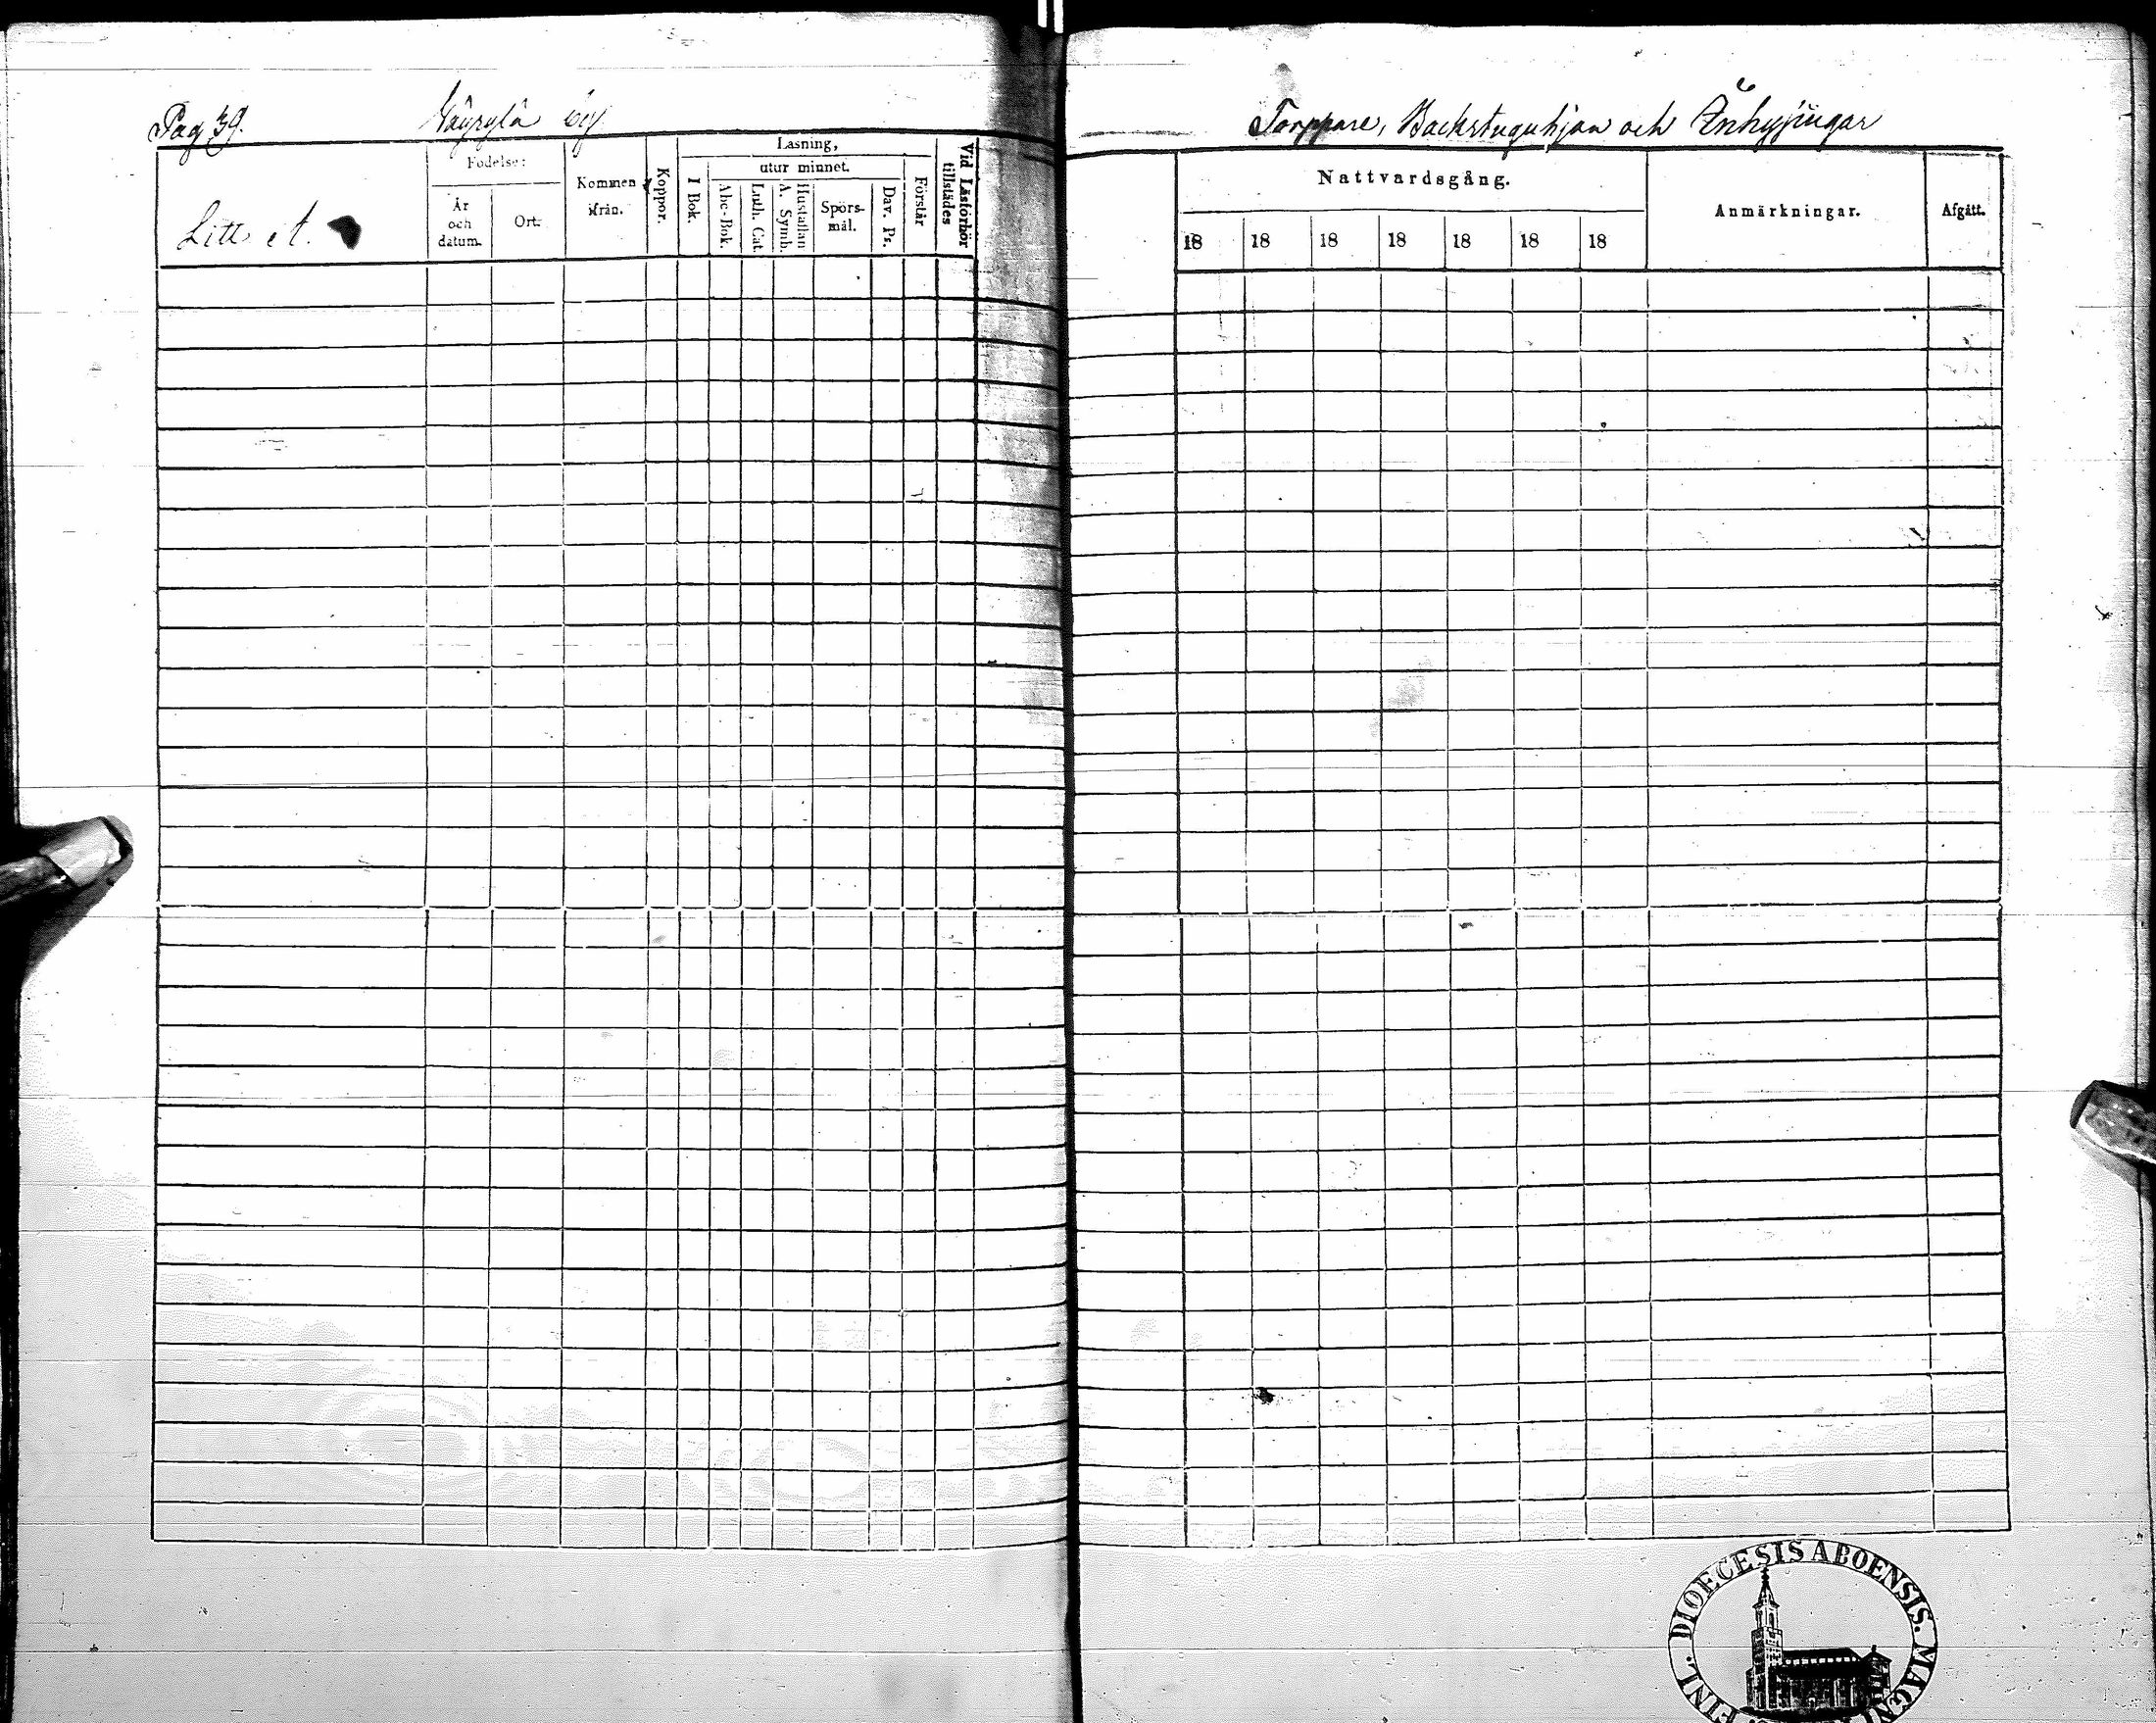 Pag 39.
by
Litt. A.
Födelse:
År
och
datum.
Ort.
Kommen
ifrån.
Koppor.
Läsning,
I Bok.
utur minnet.
Abc-Bok.
Luth. Cat.
Hustaflan
A. Symb.
Spörs-
mål.
Dav. Ps.
Förstår
Vid Läsförhör
tillstädes
Torppare, Backstuguhjon och Inhysingar
Nattvardsgång.
18 18 18 18 18 18 18
Anmärkningar.
Afgått.
DIOECESIS ABOENSIS. MAGNI
FINL.